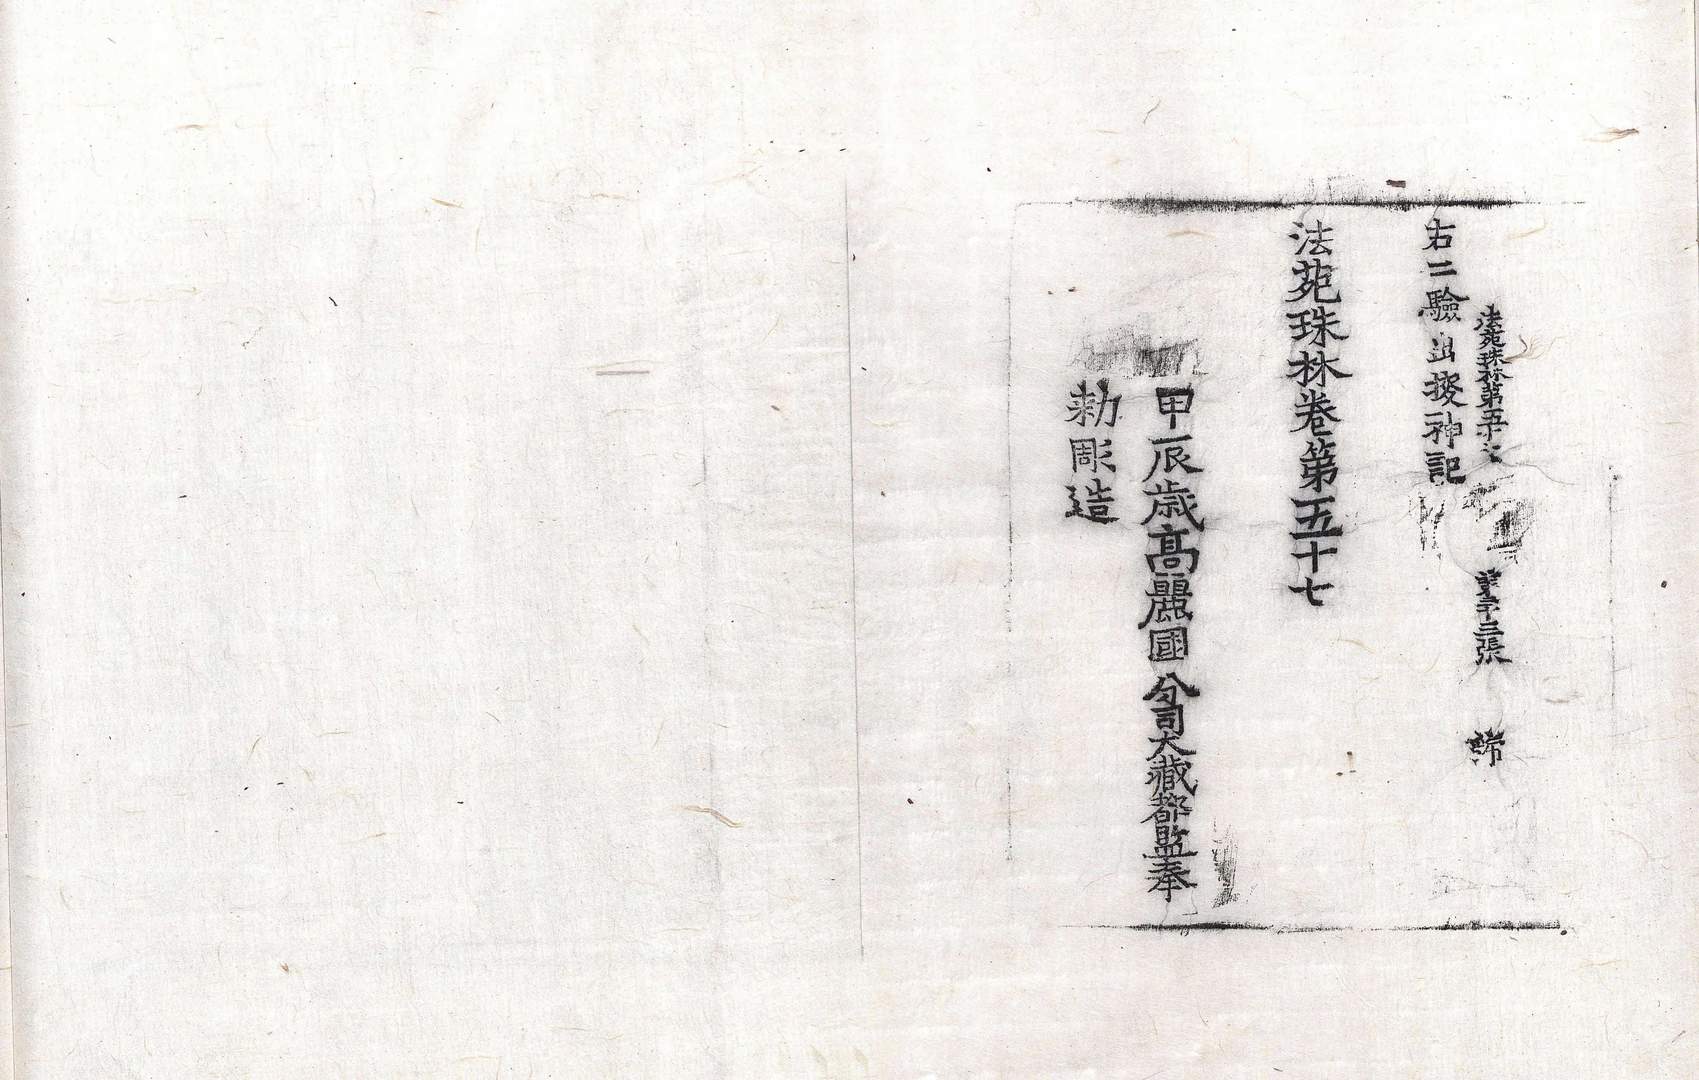 法苑珠林第五十七 第三十三張 諦
右二驗出搜神記
法苑珠林卷第五十七
甲辰歲高麗國分司大藏都監奉
勅彫造